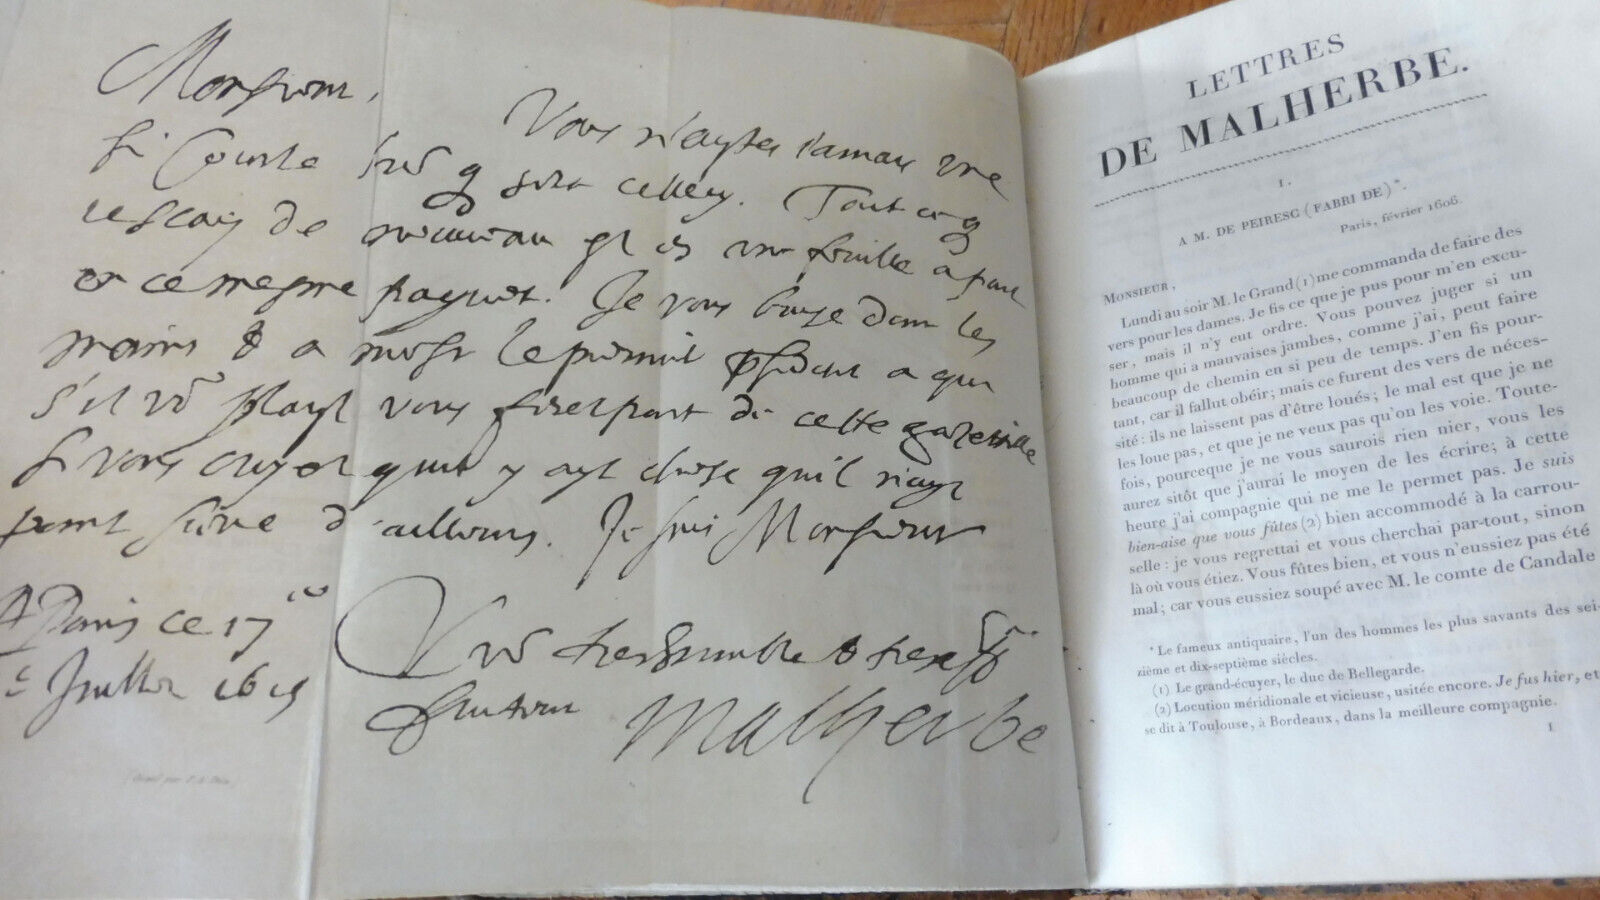 Monsieur,
Vous n'aystes iamais vne
si courte que celle cy. Tout ce q
ie scay de nouueau est en vne feuille a part
en ce mesme pacquet. Je vous baise dans les
mains & a
s'il vous plaist vous ferez part de cette gazette
si vous croyez quil y ayt chose quil n'ayt
point sceue d'ailleurs. Je suis Monsieur
A Paris ce 17
Juillet 1615
Vre treshumble & tresaff
seruiteur Malherbe
LETTRES
DE MALHERBE.
I.
A M. DE PEIRESC (FABRI DE)*.
Paris, février 1606.
MONSIEUR,
Lundi au soir M. le Grand (1) me commanda de faire des
vers pour les dames. Je fis ce que je pus pour m'en excu-
ser, mais il n'y eut ordre. Vous pouvez juger si un
homme qui a mauvaises jambes, comme j'ai, peut faire
beaucoup de chemin en si peu de temps. J'en fis pour-
tant, car il fallut obéir; mais ce furent des vers de néces-
sité: ils ne laissent pas d'être loués; le mal est que je ne
les loue pas, et que je ne veux pas qu'on les voie. Toute-
fois, pourceque je ne vous saurois rien nier, vous les
aurez sitôt que j'aurai le moyen de les écrire; à cette
heure j'ai compagnie qui ne me le permet pas. Je suis
bien-aise que vous fûtes (2) bien accommodé à la carrou-
selle: je vous regrettai et vous cherchai par-tout, sinon
là où vous étiez. Vous fûtes bien, et vous n'eussiez pas été
mal; car vous eussiez soupé avec M. le comte de Candale
* Le fameux antiquaire, l'un des hommes les plus savants des sei-
zième et dix-septième siècles.
(1) Le grand-écuyer, le duc de Bellegarde.
(2) Locution méridionale et vicieuse, usitée encore. Je fus hier, et
se dit à Toulouse, à Bordeaux, dans la meilleure compagnie.
1